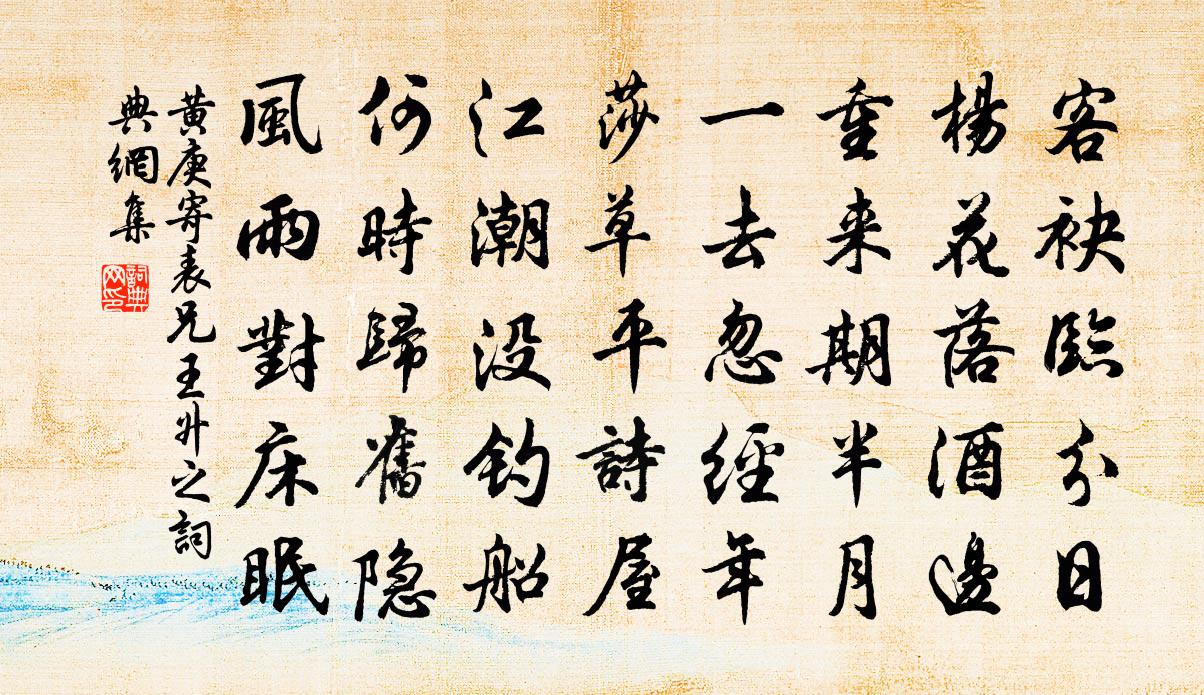 客袂臨分日
楊花落酒邊
重来期半月
一去忽經年
莎草平詩屋
江潮没釣船
何時歸舊隐
風雨對床眠
黄庚寄表兄王升之詞
典網集
詞典
网印